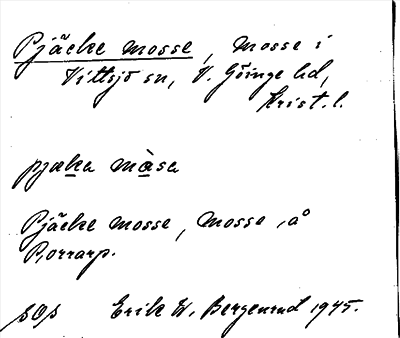 Pjäcke mosse, mosse i
Vittsjö sn, V. Göinge hd,
Krist. l.
pjaka màsa
Pjäcke mosse, mosse å
Porrarp.
Erik W. Bergenrud 1945.